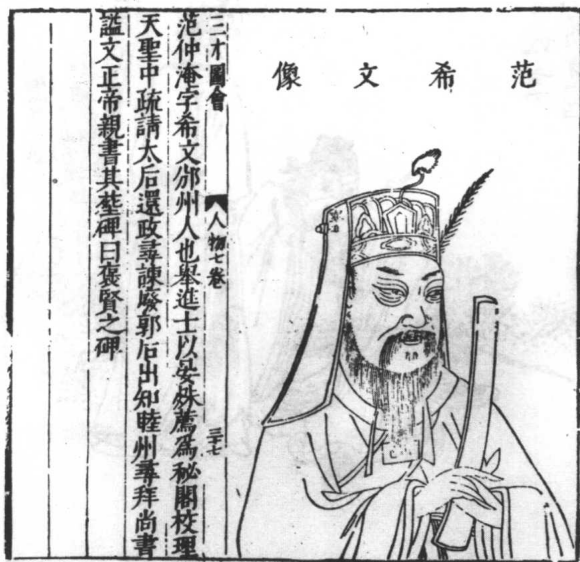 范希文像
三才圖會 人物七卷 三十七
范仲淹字希文邠州人也舉進士以晏殊薦爲秘閣校理
天聖中疏請太后還政尋諫廢郭后出知睦州尋拜尚書
諡文正帝親書其墓碑曰褒賢之碑